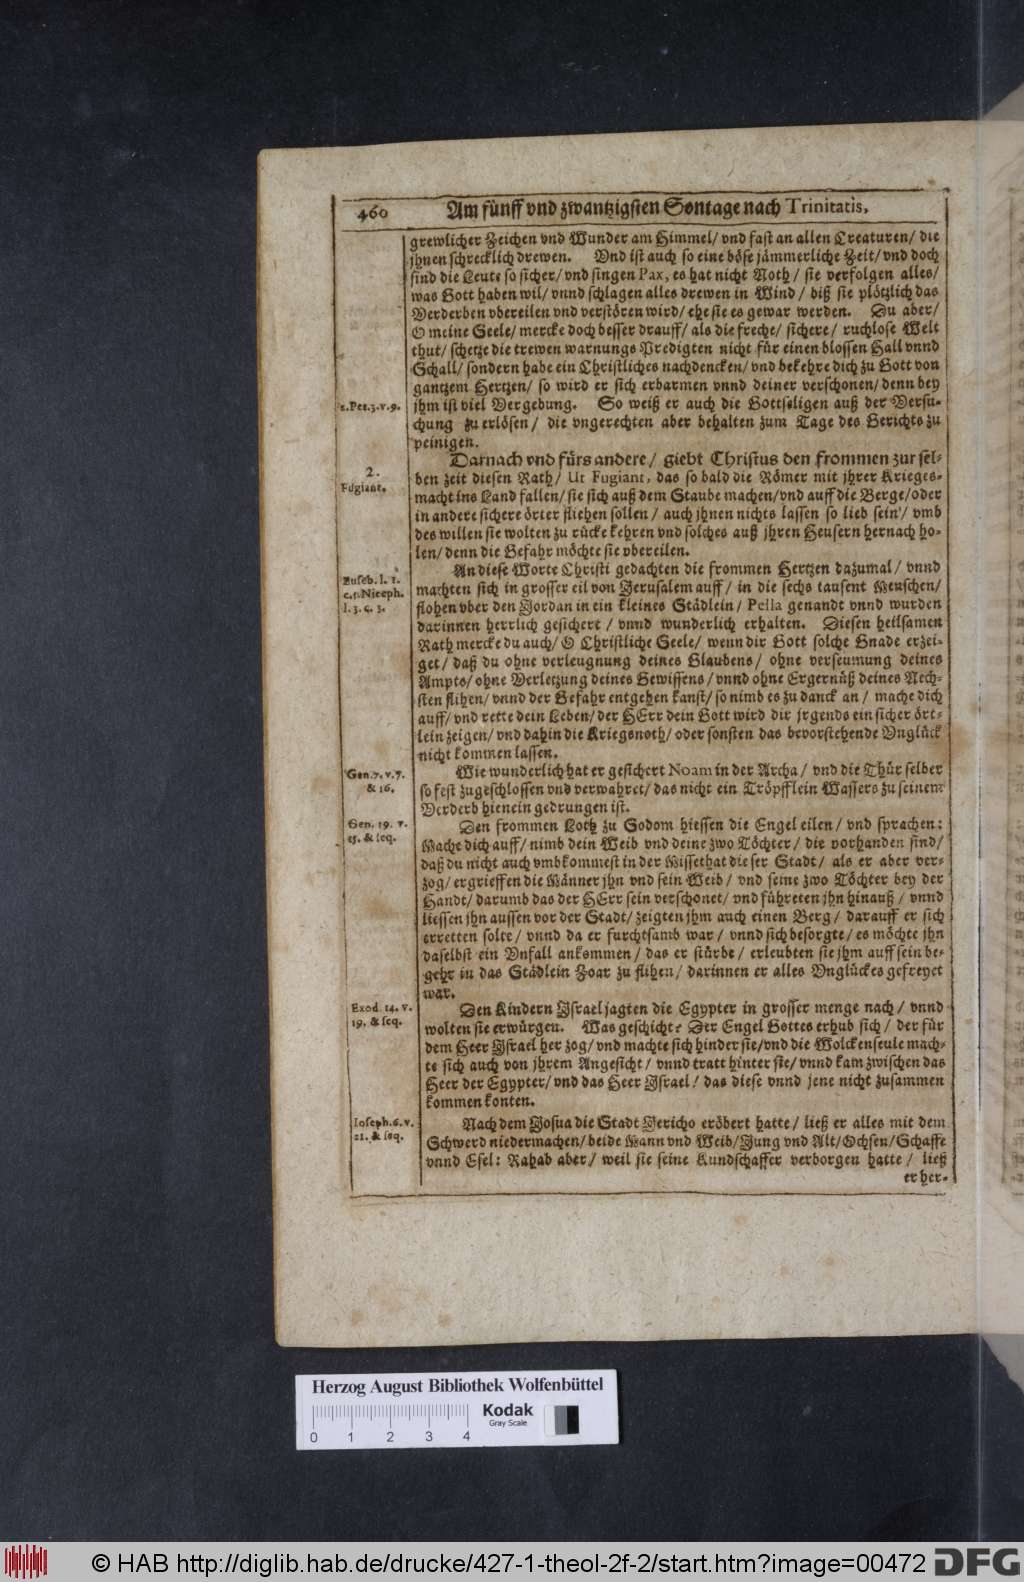 460 Am fünff vnd zwantzigsten Sontage nach Trinitatis,
grewlicher Zeichen vnd Wunder am Himmel/ vnd fast an allen Creaturen/ die
jhnen schrecklich drewen. Vnd ist auch so eine böse jämmerliche Zeit/ vnd doch
sind die Leute so sicher/ vnd singen Pax, es hat nicht Noth/ sie verfolgen alles/
was Gott haben wil/ vnnd schlagen alles drewen in Wind/ biß sie plötzlich das
Verderben vbereilen vnd verstören wird/ ehe sie es gewar werden. Du aber/
O meine Seele/ mercke doch besser drauff/ als die freche/ sichere/ ruchlose Welt
thut/ schetze die trewen warnungs Predigten nicht für einen blossen Hall vnnd
Schall/ sondern habe ein Christliches nachdencken/ vnd bekehre dich zu Gott von
gantzem Hertzen/ so wird er sich erbarmen vnnd deiner verschonen/ denn bey
2.Pet.3.v.9. jhm ist viel Vergebung. So weiß er auch die Gottseligen auß der Versu-
chung zu erlösen/ die vngerechten aber behalten zum Tage des Gerichts zu
peinigen.
2.
Fugiant.
Darnach vnd fürs andere/ giebt Christus den frommen zur sel-
ben zeit diesen Rath/ Ut Fugiant, das so bald die Römer mit jhrer Krieges-
macht ins Land fallen/ sie sich auß dem Staube machen/ vnd auff die Berge/ oder
in andere sichere örter fliehen sollen/ auch jhnen nichts lassen so lieb sein/ vmb
des willen sie wolten zu rücke kehren vnd solches auß jhren Heusern hernach ho-
len/ denn die Gefahr möchte sie vbereilen.
Euseb. l. 1.
c.5.Niceph.
l. 3. c. 3.
An diese Worte Christi gedachten die frommen Hertzen dazumal/ vnnd
machten sich in grosser eil von Jerusalem auff/ in die sechs tausent Menschen/
flohen vber den Jordan in ein kleines Städlein/ Pella genandt vnnd wurden
darinnen herrlich gesichert/ vnnd wunderlich erhalten. Diesen heilsamen
Rath mercke du auch/ O Christliche Seele/ wenn dir Gott solche Gnade erzei-
get/ daß du ohne verleugnung deines Glaubens/ ohne verseumung deines
Ampts/ ohne Verletzung deines Gewissens/ vnnd ohne Ergernüß deines Nech-
sten flihen/ vnnd der Gefahr entgehen kanst/ so nimb es zu danck an/ mache dich
auff/ vnd rette dein Leben/ der HErr dein Gott wird dir jrgends ein sicher ört-
lein zeigen/ vnd dahin die Kriegsnoth/ oder sonsten das bevorstehende Vnglück
nicht kommen lassen.
Gen.7.v.7.
& 16.
Wie wunderlich hat er gesichert Noam in der Archa/ vnd die Thür selber
so fest zugeschlossen vnd verwahret/ das nicht ein Tröpfflein Wassers zu seinem
Verderb hienein gedrungen ist.
Gen. 19. v.
15. & seq.
Den frommen Loth zu Sodom hiessen die Engel eilen/ vnd sprachen:
Mache dich auff/ nimb dein Weib vnd deine zwo Töchter/ die vorhanden sind/
daß du nicht auch vmbkommest in der Missethat dieser Stadt/ als er aber ver-
zog/ ergrieffen die Männer jhn vnd sein Weib/ vnd seine zwo Töchter bey der
Handt/ darumb das der HErr sein verschonet/ vnd führeten jhn hinauß/ vnnd
liessen jhn aussen vor der Stadt/ zeigten jhm auch einen Berg/ darauff er sich
erretten solte/ vnnd da er furchtsamb war/ vnnd sich besorgte/ es möchte jhn
daselbst ein Vnfall ankommen/ das er stürbe/ erleubten sie jhm auff sein be-
gehr in das Städlein Zoar zu flihen/ darinnen er alles Vnglückes gefreyet
war.
Exod. 14. v.
19. & seq.
Den Kindern Israel jagten die Egypter in grosser menge nach/ vnnd
wolten sie erwürgen. Was geschicht? Der Engel Gottes erhub sich/ der für
dem Heer Israel her zog/ vnd machte sich hinder sie/ vnd die Wolckenseule mach-
te sich auch von jhrem Angesicht/ vnnd tratt hinter sie/ vnnd kam zwischen das
Heer der Egypter/ vnd das Heer Israel/ das diese vnnd jene nicht zusammen
kommen konten.
Ioseph.6.v.
21. & seq.
Nach dem Josua die Stadt Jericho eröbert hatte/ ließ er alles mit dem
Schwerd niedermachen/ beide Mann vnd Weib/ Jung vnd Alt/ Ochsen/ Schaffe
vnnd Esel: Rahab aber/ weil sie seine Kundschaffer verborgen hatte/ ließ
er her-
Herzog August Bibliothek Wolfenbüttel
Kodak
Gray Scale
0 1 2 3 4
© HAB http://diglib.hab.de/drucke/427-1-theol-2f-2/start.htm?image=00472 DFG